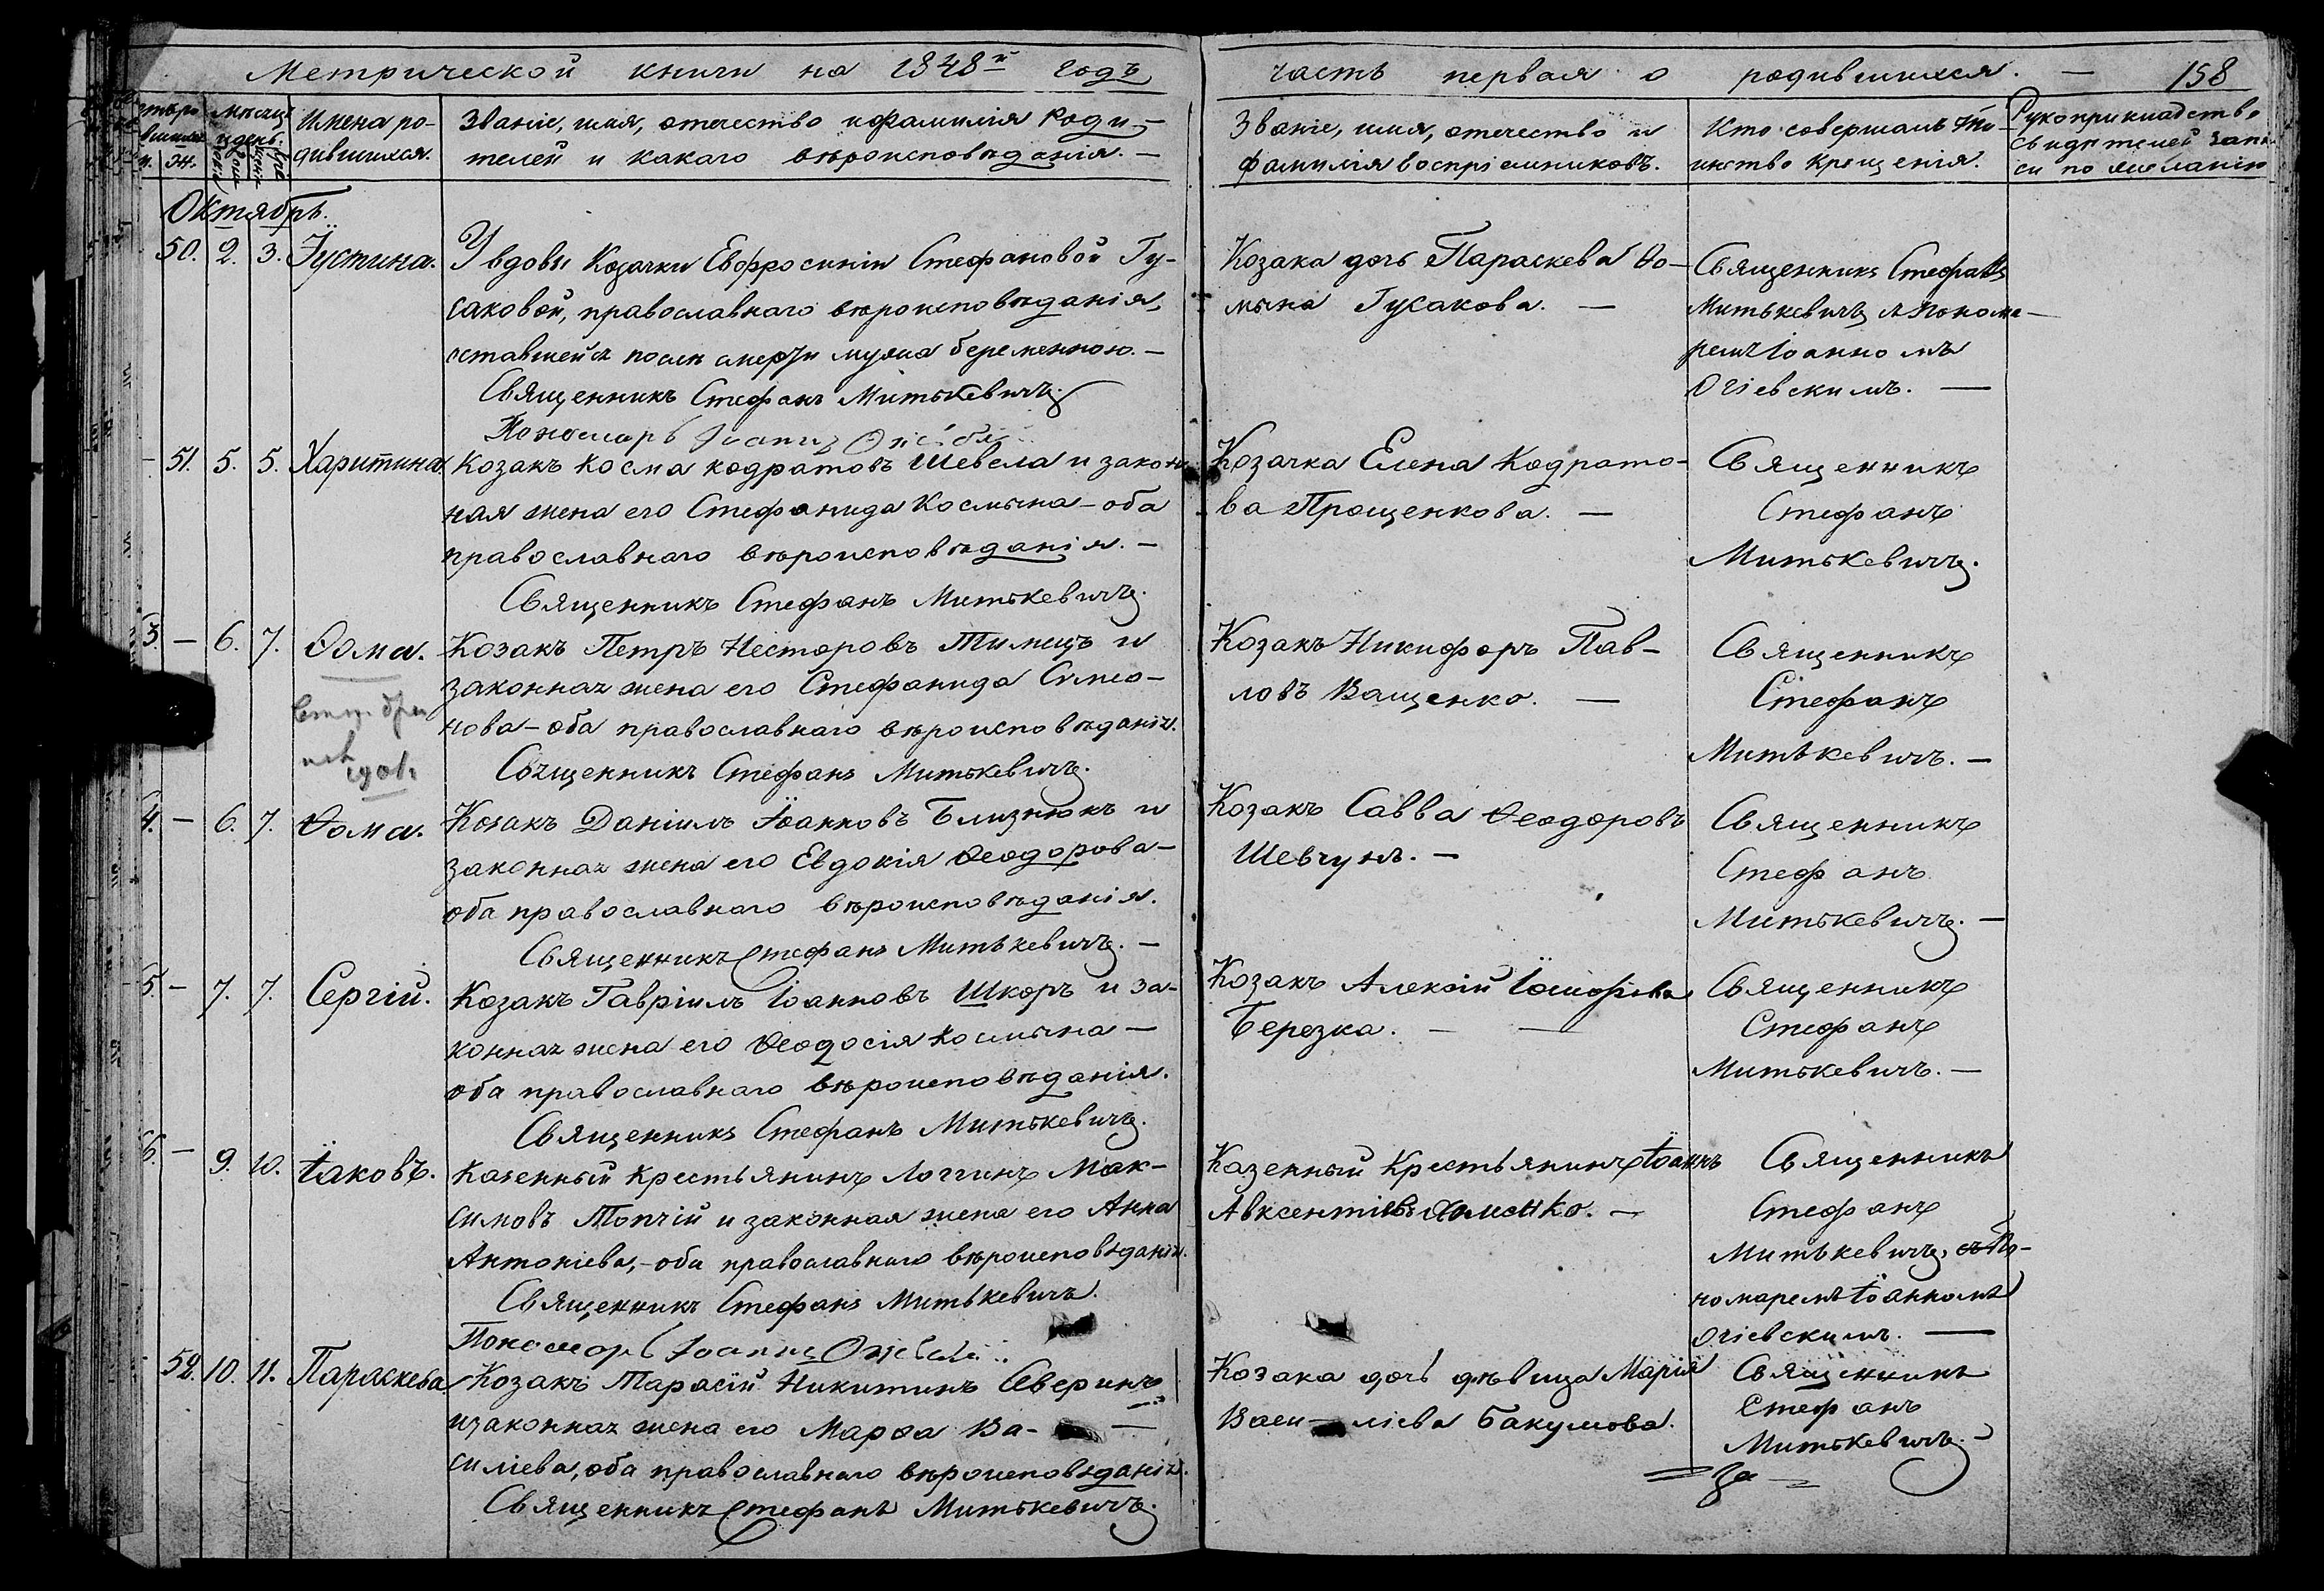 Метрической книги на 1848й годъ
часть первая о родившихся. — 158
Имена ро-
дившихся.
Званіе, имя, отчество и фамилія роди-
телей и какаго вѣроисповѣданія. —
Званіе, имя, отчество и
фамилія воспріемниковъ.
Кто совершалъ таи-
инство крещенія.
Рукоприкладство
свидѣтелей запи-
си по желанію
Октябрь.
50. 2. 3. Іустина.
У вдовы Козачки Евфросиніи Стефановой Гу-
саковой, православнаго вѣроисповѣданія,
оставшейся послѣ смерти мужа беременною. —
Священникъ Стефанъ Митькевичъ.
Пономарь Іоаннъ
Козака дочь Параскева Ѳо-
мина Гусакова. —
Священникъ Стефанъ
Митькевичъ с Понома-
ремъ Іоанномъ
Огіевскимъ. —
51. 5. 5. Харитина.
Козакъ Косма Кодратовъ Шевела и закон-
ная жена его Стефанида Космина — оба
православнаго вѣроисповѣданія. —
Священникъ Стефанъ Митькевичъ.
Козачка Елена Кодрато-
ва Прощенкова. —
Священникъ
Стефанъ
Митькевичъ.
3. — 6. 7. Ѳома.
Козакъ Петръ Несторовъ Тимецъ и
законная жена его Стефанида Симео-
нова — оба православнаго вѣроисповѣданія.
Священникъ Стефанъ Митькевичъ.
Козакъ Никифоръ Пав-
ловъ Ващенко. —
Священникъ
Стефанъ
Митькевичъ. —
4. — 6. 7. Ѳома.
Козакъ Даніилъ Іоанновъ Близнюкъ и
законная жена его Евдокія Ѳеодорова —
оба православнаго вѣроисповѣданія.
Священникъ Стефанъ Митькевичъ. —
Козакъ Савва Ѳеодоровъ
Шевчунъ. —
Священникъ
Стефанъ
Митькевичъ. —
5. — 7. 7. Сергій.
Козакъ Гавріилъ Іоанновъ Шкоръ и за-
конная жена его Ѳеодосія Космина —
оба православнаго вѣроисповѣданія.
Священникъ Стефанъ Митькевичъ.
Козакъ Алексій Іосифовъ
Березка. —
Священникъ
Стефанъ
Митькевичъ. —
6. — 9. 10. Іаковъ.
Казенный крестьянинъ Логгинъ Мак-
симовъ Топчій и законная жена его Анна
Антоніева, — оба православнаго вѣроисповѣданія.
Священникъ Стефанъ Митькевичъ.
Пономарь Іоаннъ
Казенный Крестьянинъ Іоаннъ
Авксентіевъ Хоменко. —
Священникъ
Стефанъ
Митькевичъ, съ По-
номаремъ Іоанномъ
Огіевскимъ. —
52. 10. 11. Параскева
Козакъ Тарасій Никитинъ Северинъ
и законная жена его Марѳа Ва-
силіева, оба православнаго вѣроисповѣданія.
Священникъ Стефанъ Митькевичъ.
Козака дочь дѣвица Марія
Васи-ліева Бакумова.
Священникъ
Стефанъ
Митькевичъ. —